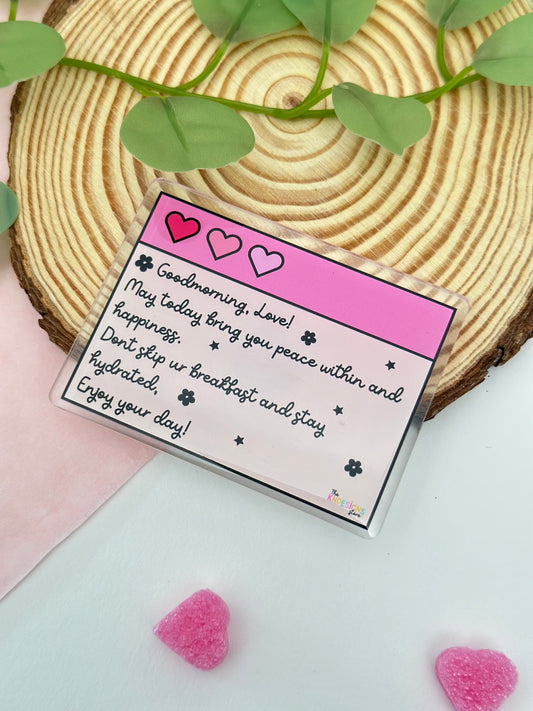 Goodmorning, Love!
May today bring you peace within and
happiness.
Dont skip ur breakfast and stay
hydrated,
Enjoy your day!
The
KNDESIGNS
Store